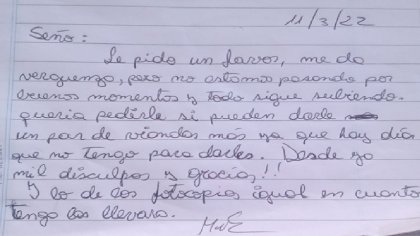 11/3/22
Seño:
Le pido un favor, me da
verguenza, pero no estamos pasando por
buenos momentos y todo sigue subiendo.
queria pedirle si pueden darle
un par de viandas más ya que hay días
que no tengo para darles. Desde ya
mil disculpas y gracias!!
Y lo de las fotocopias igual en cuanto
tengo las llevara.